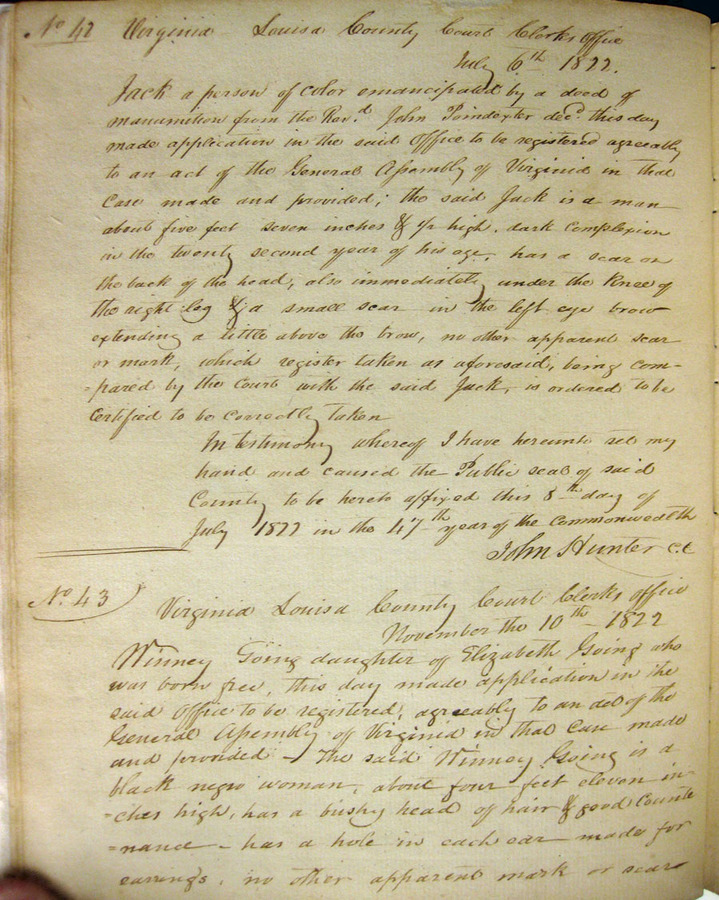 No 42 Virginia Louisa County Court Clerks Office
July 6th 1822.
Jack a person of color emancipated by a deed of
manumition from the Revd. John Poindexter decd. this day
made application in the said Office to be registered agreeably
to an act of the General Assembly of Virginia in that
Case made and provided; the said Jack is a man
about five feet seven inches & high, dark complexion
in the twenty second year of his age, has a scar on
the back of the head, also immediately under the Knee of
the right leg & a small scar in the left eye brow
extending a little above the brow, no other apparent scar
or mark, which register taken as aforesaid, being com-
=pared by the Court with the said Jack, is ordered to be
Certified to be correctly taken
In testimony whereof I have hereunto set my
hand and caused the Public seal of said
County to be hereto affixed this 8th day of
July 1822 in the 47th year of the Commonwealth
John Hunter C.C
No. 43 Virginia Louisa County Court Clerks office
November the 10th 1822
Winney Going daughter of Elizabeth Going who
was born free, this day made application in the
said Office to be registered, agreeably to an act of the
General Assembly of Virginia in that Case made
and provided - The said Winney Going is a
black negro woman, about four feet eleven in-
=ches high, has a bushy head of hair & good Counte
=nance - has a hole in each ear made for
earrings, no other apparent mark or scar